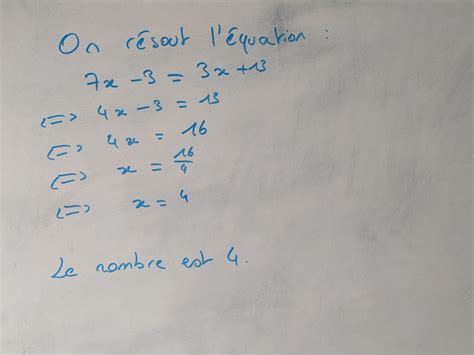 On résout l'équation :
7x - 3 = 3x + 13
<=> 4x - 3 = 13
<=> 4x = 16
<=> x = 16/4
<=> x = 4
Le nombre est 4.